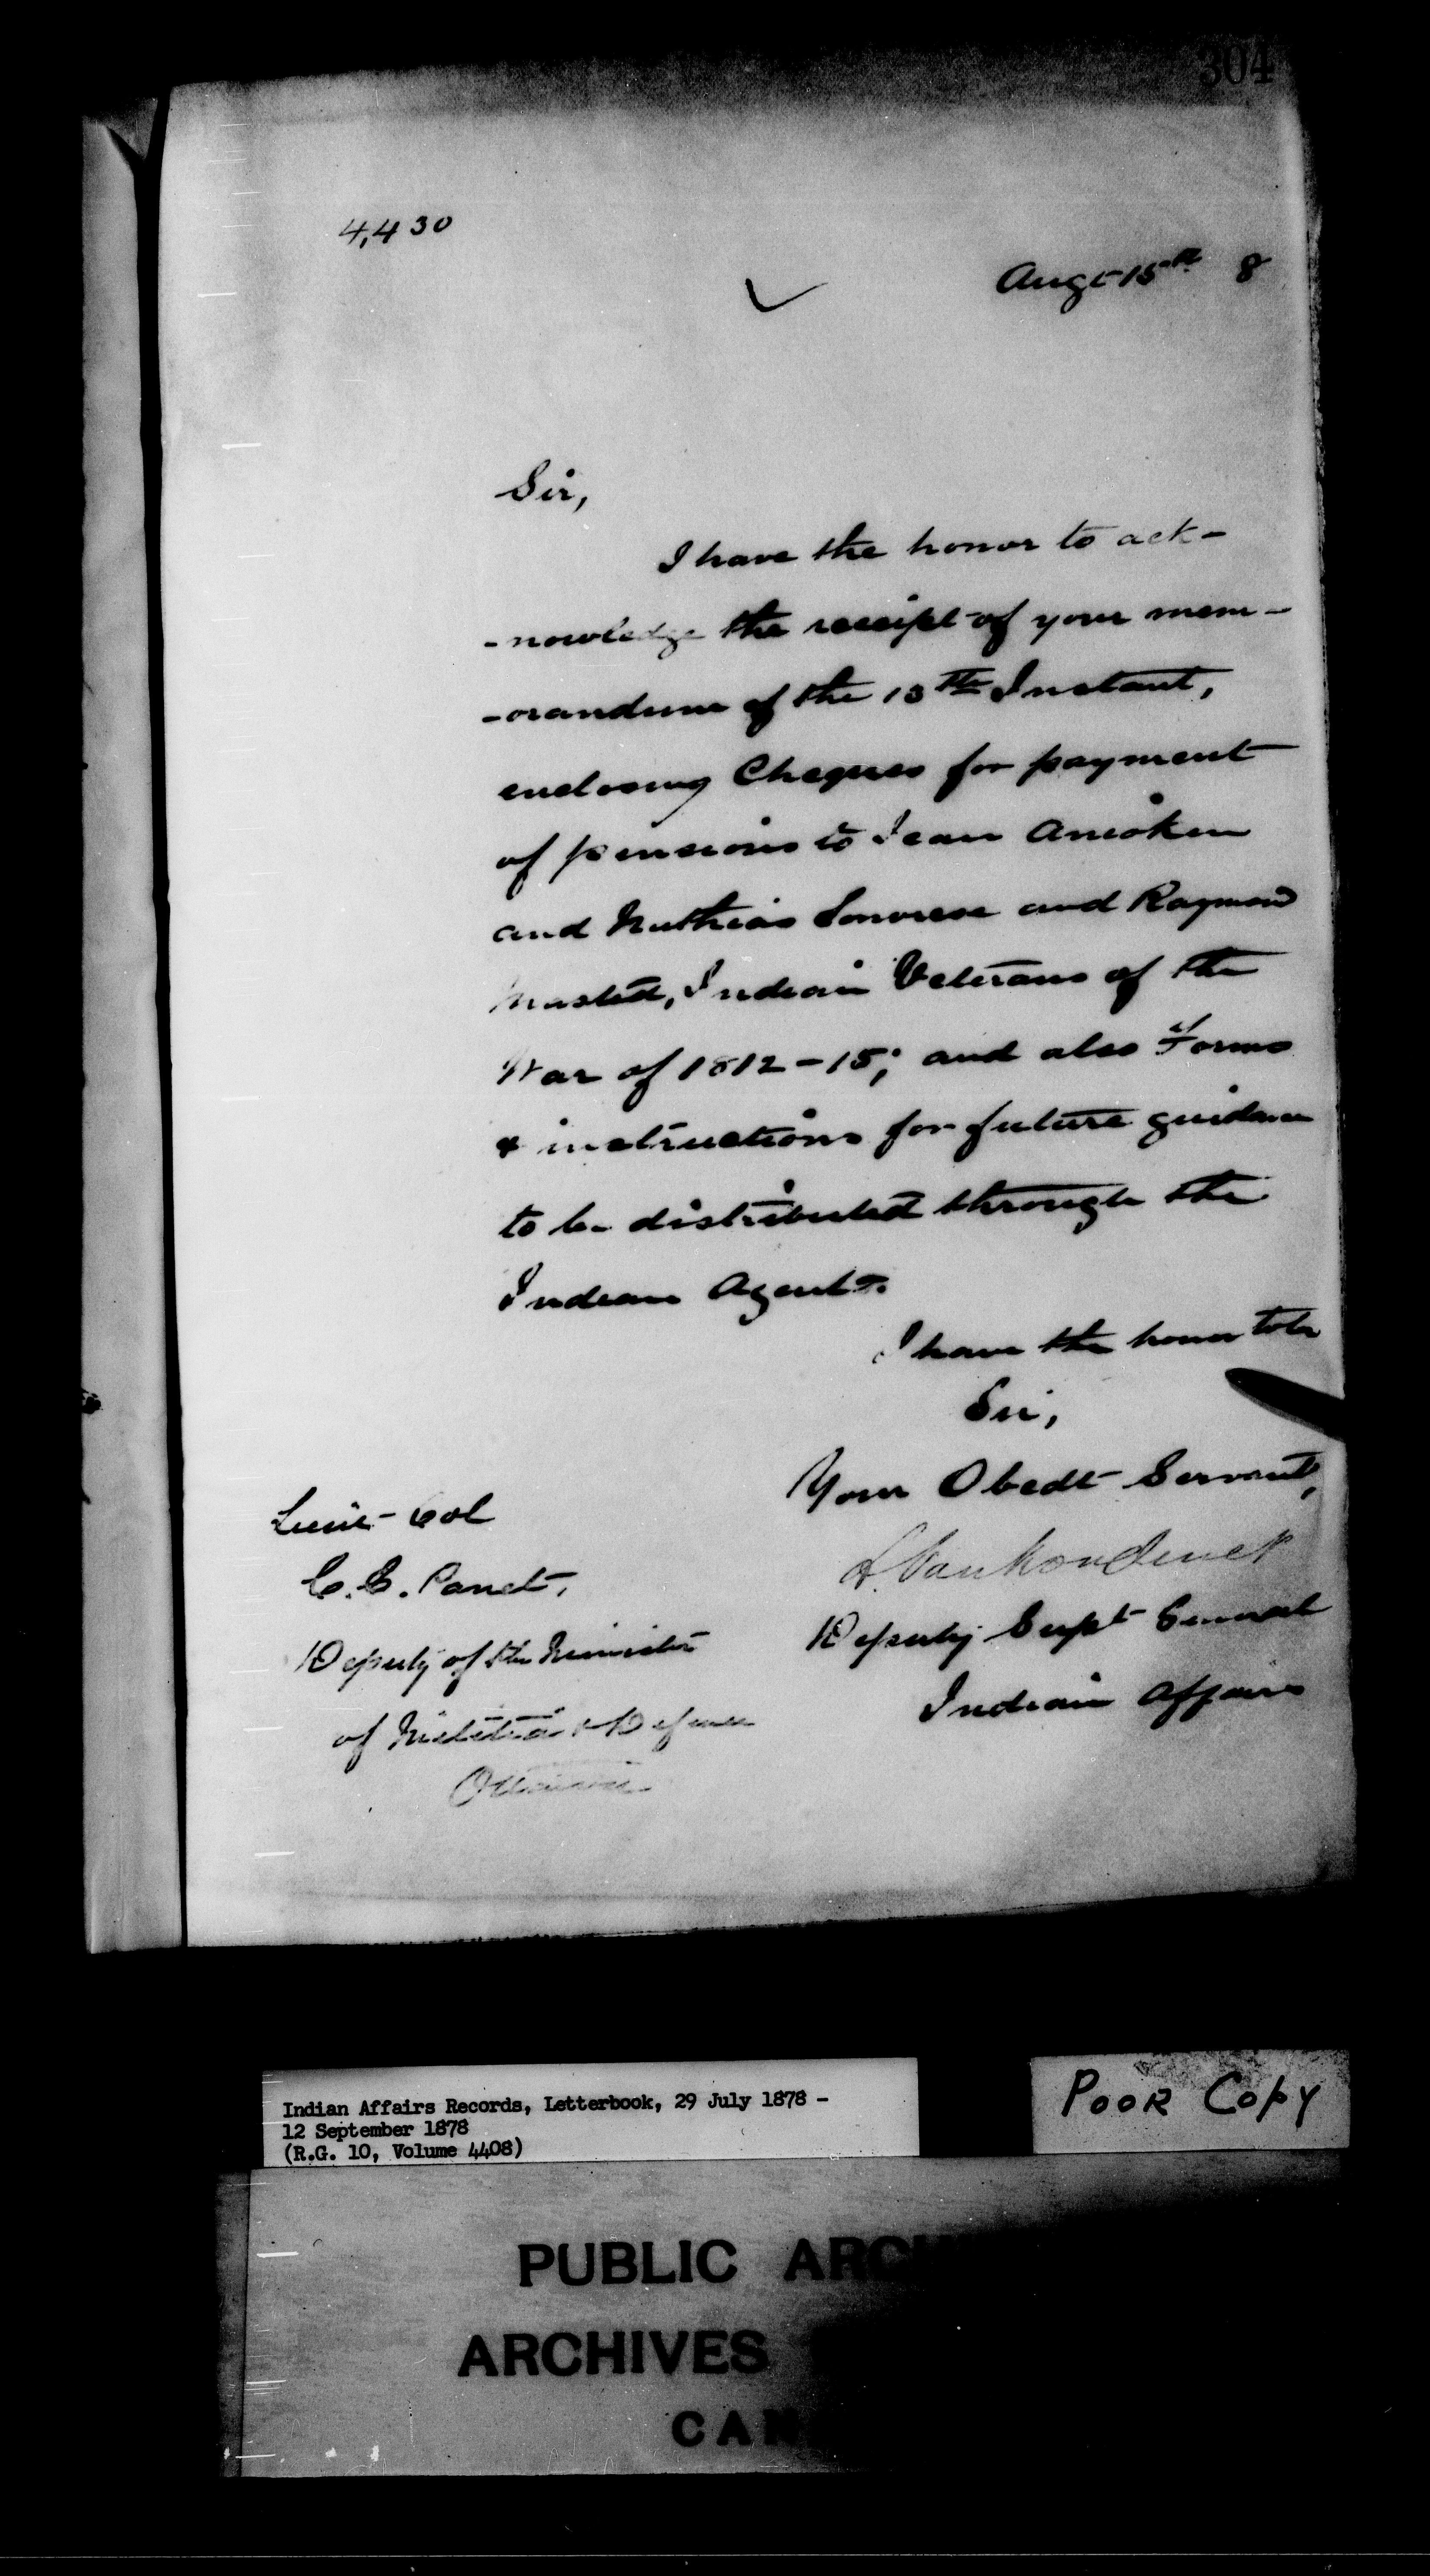 304
4,430
Augt 15th 8
Sir,
I have the honor to ack-
-nowledge the receipt of your mem-
-orandum of the 13th Instant,
enclosing Cheques for payment
of pensions to Jean
and and Raymond
Indian Veterans of the
War of 1812-15; and also Forms
& instructions for future guidance
to be distributed through the
Indian Agents.
I have the honor to be
Sir,
Your Obedt Servant,
L. Vankoughnet
Deputy Supt General
Indian Affairs
Lieut-Col
C. E. Panet,
Deputy of the Minister
of Militia & Defence
Ottawa
Indian Affairs Records, Letterbook, 29 July 1878 -
12 September 1878
(R.G. 10, Volume 4408)
POOR COPY
PUBLIC ARCH
ARCHIVES
CAN